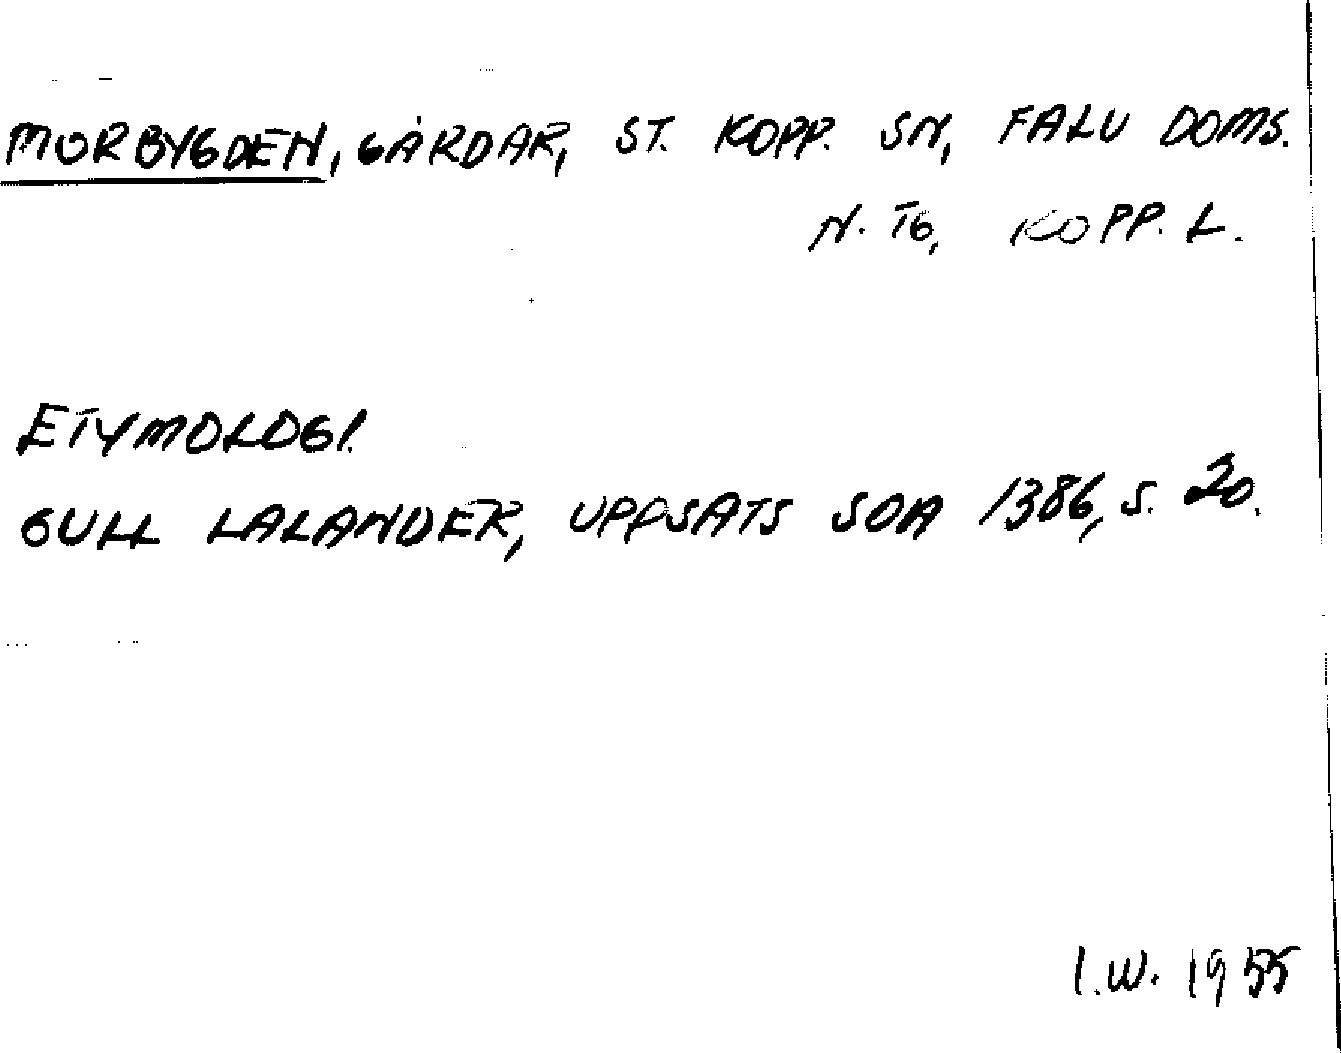 MORBYGDEN, GÅRDAR, ST. KOPP. SN, FALU DOMS.
N. TG, KOPP. L.
ETYMOLOGI.
GULL LALANDER, UPPSATS SOA 1386, S. 20.
I.W. 1955